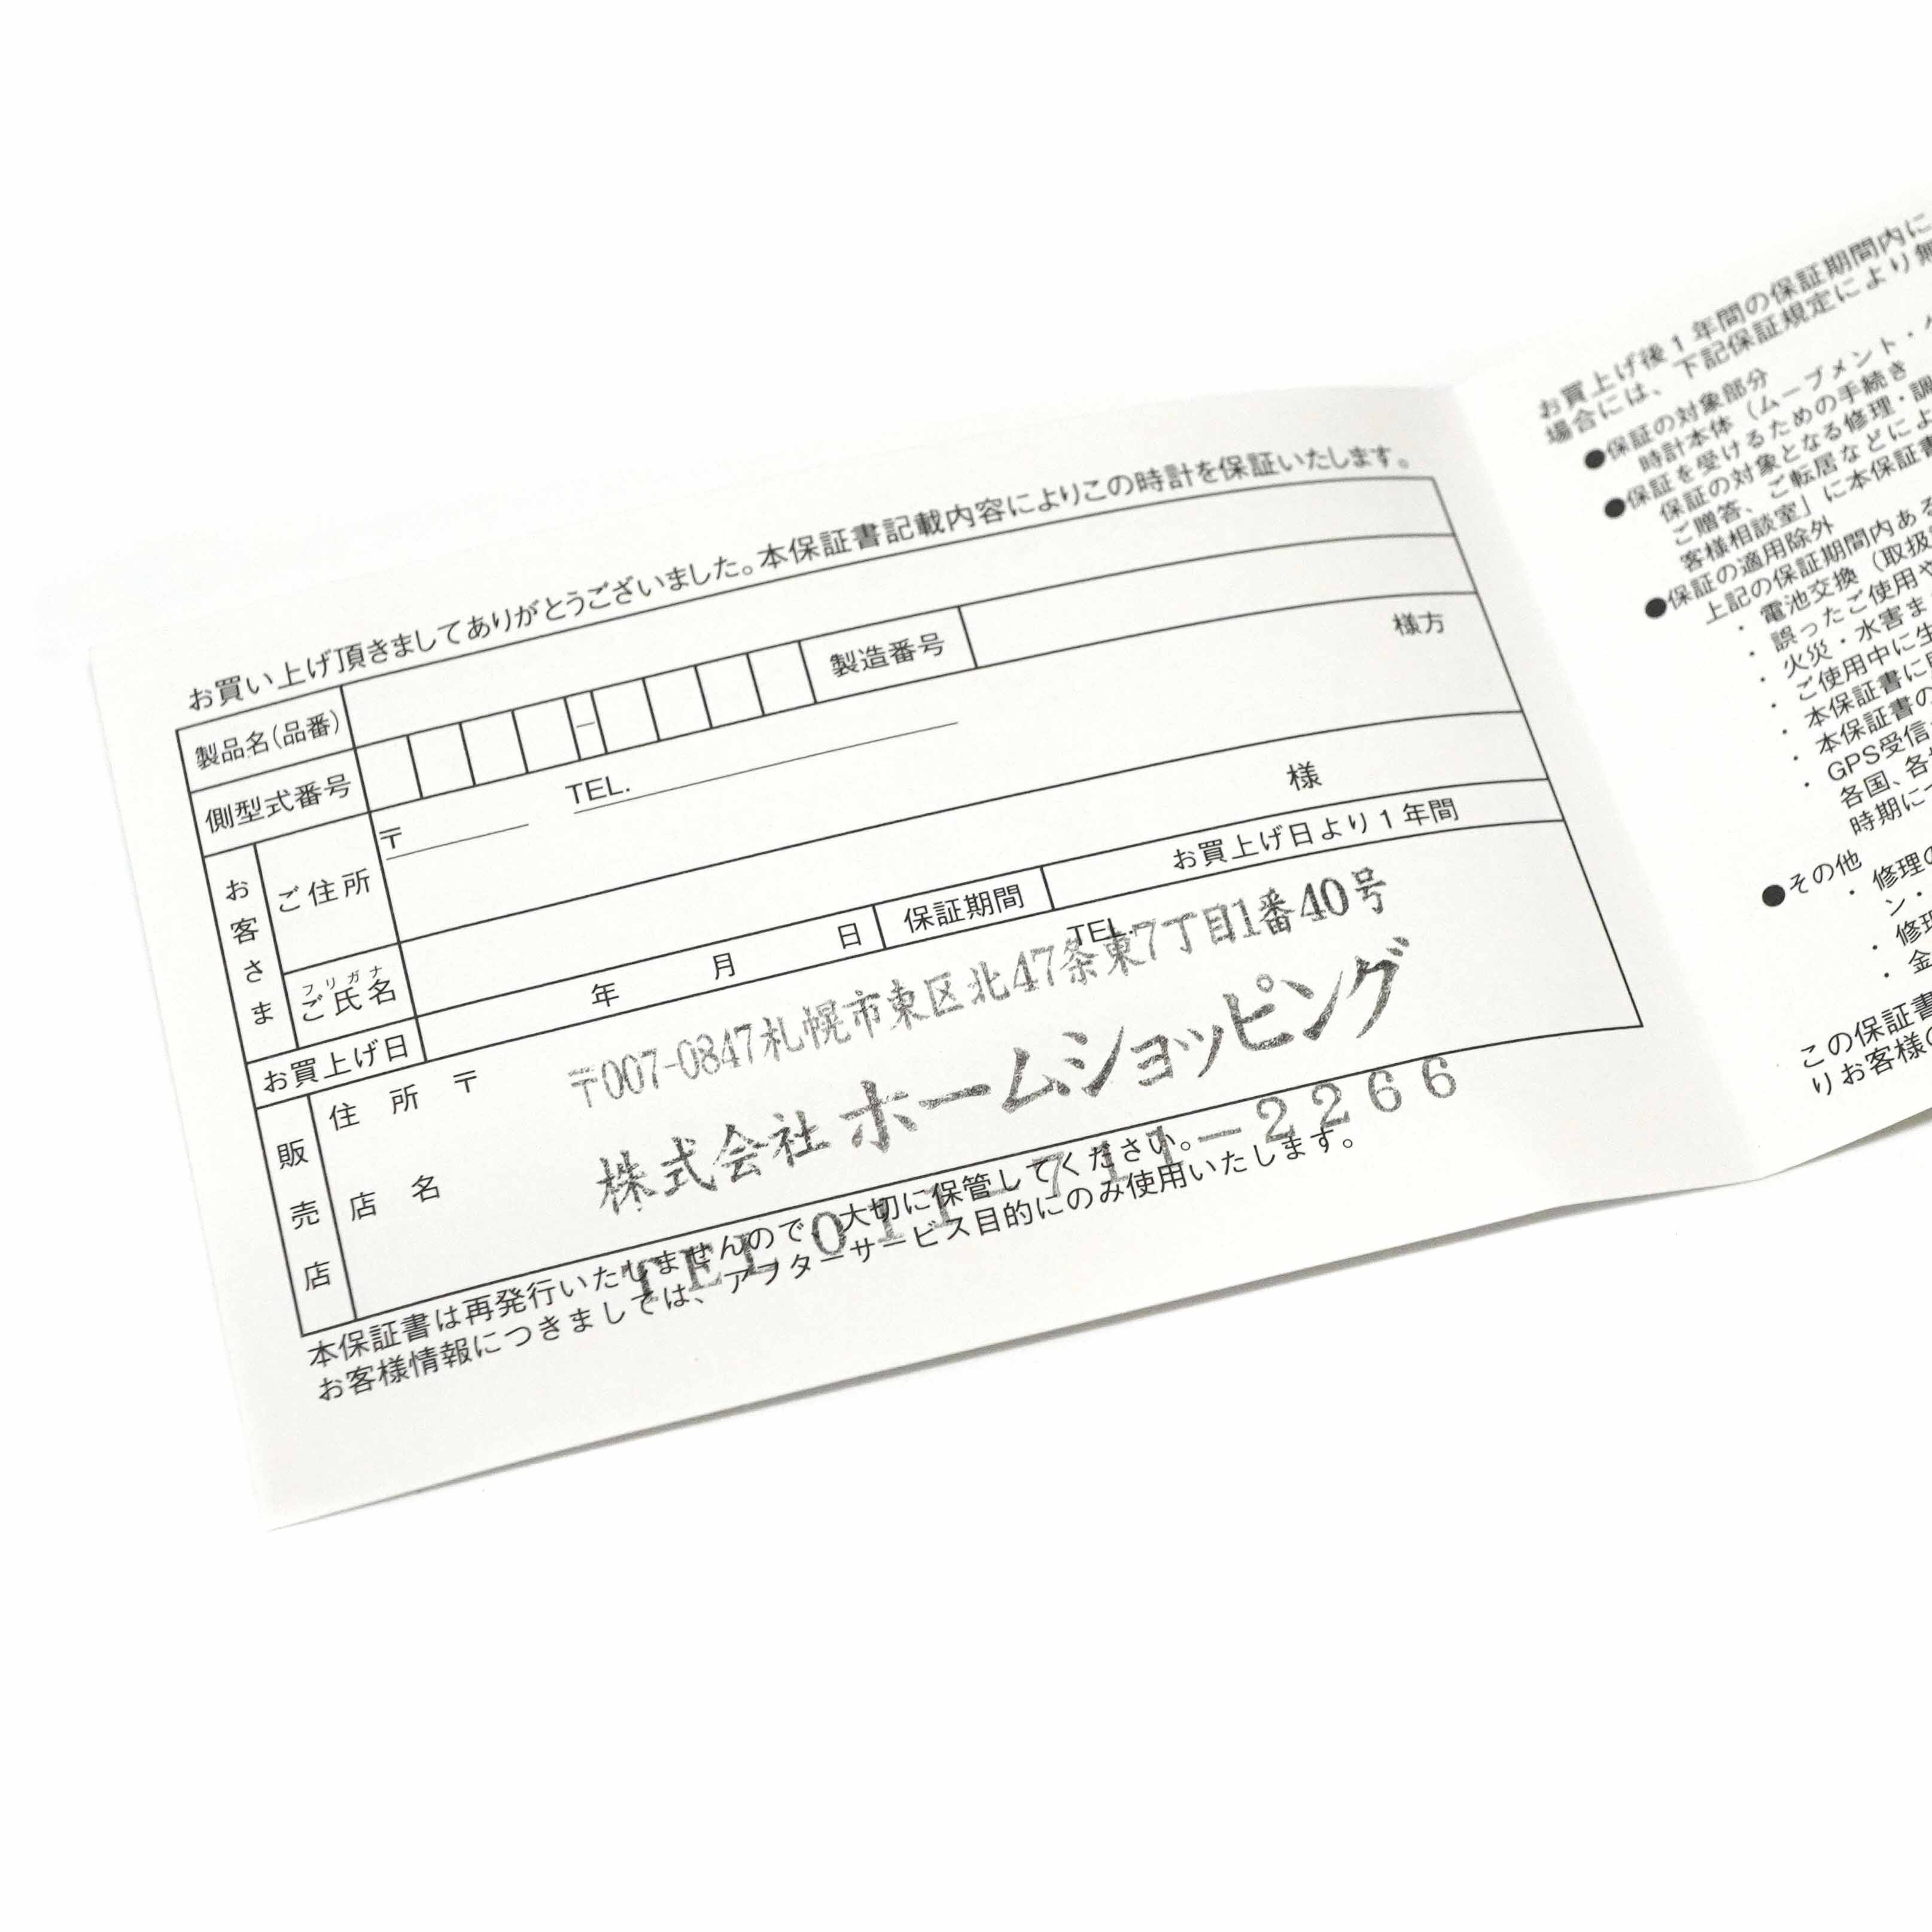 お買い上げ頂きましてありがとうございました。本保証書記載内容によりこの時計を保証いたします。
製品名(品番)
側型式番号
－
製造番号
お客さま
ご住所
〒
TEL.
様方
フリガナ
ご氏名
様
お買上げ日
年 月 日
保証期間
お買上げ日より1年間
販売店
住 所 〒
TEL.
〒007-0847札幌市東区北47条東7丁目1番40号
店 名
株式会社 ホームショッピング
TEL 011-711-2266
本保証書は再発行いたしませんので、大切に保管してください。
お客様情報につきましては、アフターサービス目的にのみ使用いたします。
お買上げ後1年間の保証期間内に
場合には、下記保証規定により無
●保証の対象部分
時計本体（ムーブメント・
●保証を受けるための手続き
保証の対象となる修理・調
ご贈答、ご転居などによ
客様相談室」に本保証書
●保証の適用除外
上記の保証期間内ある
・電池交換（取扱
・誤ったご使用や
・火災・水害ま
・ご使用中に生
・本保証書に
・本保証書の
・GPS受信
各国、各
時期に
●その他
・修理の
ン・
・修理
・金
この保証書
りお客様の